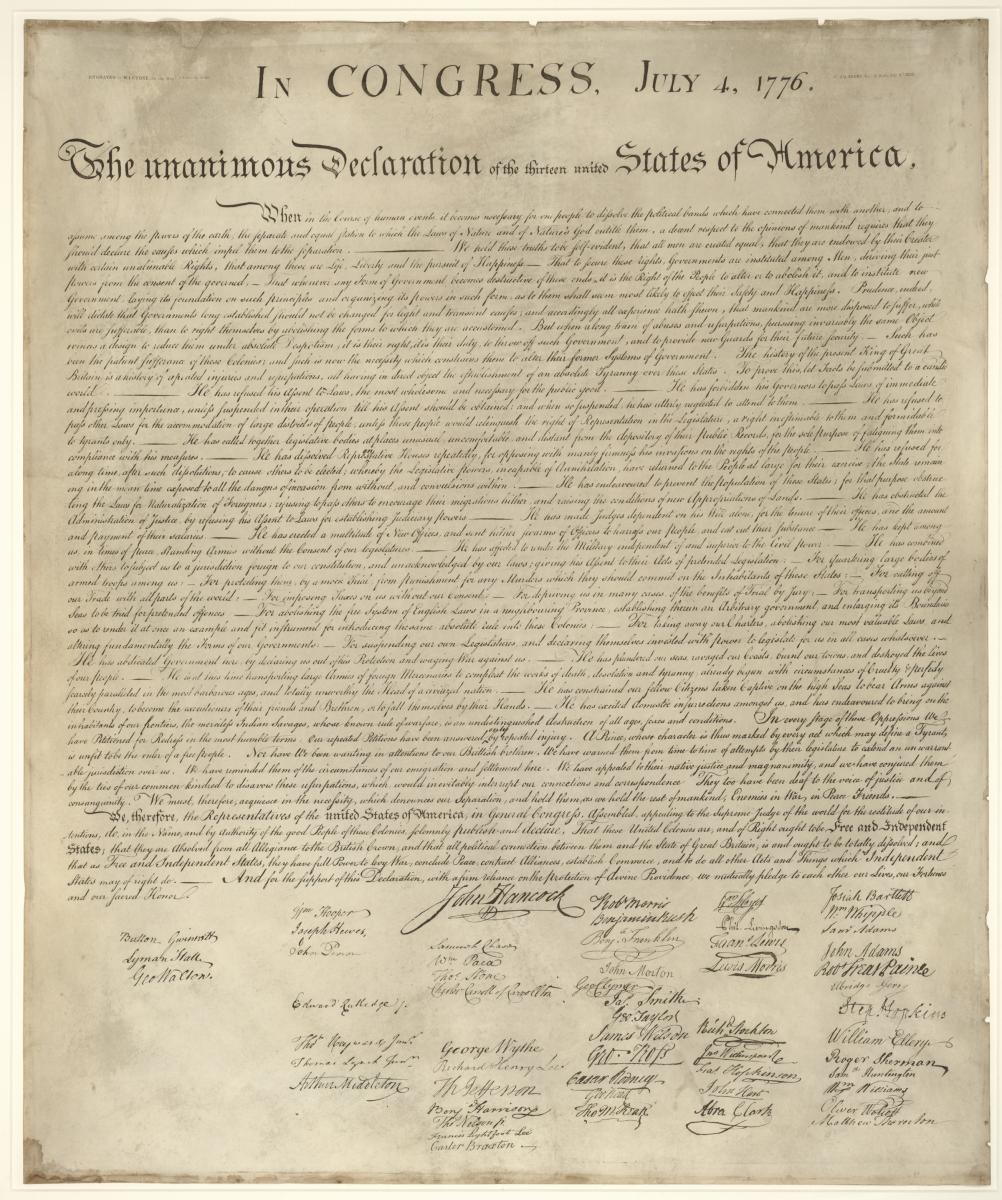 IN CONGRESS, JULY 4, 1776.
The unanimous Declaration of the thirteen united States of America,
When in the Course of human events, it becomes necessary for one people to dissolve the political bands which have connected them with another, and to
assume among the powers of the earth, the separate and equal station to which the Laws of Nature and of Nature's God entitle them, a decent respect to the opinions of mankind requires that they
should declare the causes which impel them to the separation. — We hold these truths to be self-evident, that all men are created equal, that they are endowed by their Creator
with certain unalienable Rights, that among these are Life, Liberty and the pursuit of Happiness. — That to secure these rights, Governments are instituted among Men, deriving their just
powers from the consent of the governed, — That whenever any Form of Government becomes destructive of these ends, it is the Right of the People to alter or to abolish it, and to institute new
Government, laying its foundation on such principles and organizing its powers in such form, as to them shall seem most likely to effect their Safety and Happiness. Prudence, indeed,
will dictate that Governments long established should not be changed for light and transient causes; and accordingly all experience hath shewn, that mankind are more disposed to suffer, while
evils are sufferable, than to right themselves by abolishing the forms to which they are accustomed. But when a long train of abuses and usurpations, pursuing invariably the same Object
evinces a design to reduce them under absolute Despotism, it is their right, it is their duty, to throw off such Government, and to provide new Guards for their future security. — Such has
been the patient sufferance of these Colonies; and such is now the necessity which constrains them to alter their former Systems of Government. The history of the present King of Great
Britain is a history of repeated injuries and usurpations, all having in direct object the establishment of an absolute Tyranny over these States. To prove this, let Facts be submitted to a candid
world. — He has refused his Assent to Laws, the most wholesome and necessary for the public good. — He has forbidden his Governors to pass Laws of immediate
and pressing importance, unless suspended in their operation till his Assent should be obtained; and when so suspended, he has utterly neglected to attend to them. — He has refused to
pass other Laws for the accommodation of large districts of people, unless those people would relinquish the right of Representation in the Legislature, a right inestimable to them and formidable
to tyrants only. — He has called together legislative bodies at places unusual, uncomfortable, and distant from the depository of their Public Records, for the sole purpose of fatiguing them into
compliance with his measures. — He has dissolved Representative Houses repeatedly, for opposing with manly firmness his invasions on the rights of the people. — He has refused for
a long time, after such dissolutions, to cause others to be elected; whereby the Legislative powers, incapable of Annihilation, have returned to the People at large for their exercise; the State remain
ing in the mean time exposed to all the dangers of invasion from without, and convulsions within. — He has endeavoured to prevent the population of these States; for that purpose obstruc
ting the Laws for Naturalization of Foreigners; refusing to pass others to encourage their migrations hither, and raising the conditions of new Appropriations of Lands. — He has obstructed the
Administration of Justice, by refusing his Assent to Laws for establishing Judiciary powers. — He has made Judges dependent on his Will alone, for the tenure of their offices, and the amount
and payment of their salaries. — He has erected a multitude of New Offices, and sent hither swarms of Officers to harrass our people, and eat out their substance. — He has kept among
us, in times of peace, Standing Armies without the Consent of our legislatures. — He has affected to render the Military independent of and superior to the Civil power. — He has combined
with others to subject us to a jurisdiction foreign to our constitution, and unacknowledged by our laws; giving his Assent to their Acts of pretended Legislation: — For Quartering large bodies of
armed troops among us: — For protecting them, by a mock Trial, from punishment for any Murders which they should commit on the Inhabitants of these States: — For cutting off
our Trade with all parts of the world: — For imposing Taxes on us without our Consent: — For depriving us in many cases, of the benefits of Trial by jury: — For transporting us beyond
Seas to be tried for pretended offences — For abolishing the free System of English Laws in a neighbouring Province, establishing therein an Arbitrary government, and enlarging its Boundaries
so as to render it at once an example and fit instrument for introducing the same absolute rule into these Colonies: — For taking away our Charters, abolishing our most valuable Laws, and
altering fundamentally the Forms of our Governments: — For suspending our own Legislatures, and declaring themselves invested with power to legislate for us in all cases whatsoever. —
He has abdicated Government here, by declaring us out of his Protection and waging War against us. — He has plundered our seas, ravaged our Coasts, burnt our towns, and destroyed the lives
of our people. — He is at this time transporting large Armies of foreign Mercenaries to compleat the works of death, desolation and tyranny, already begun with circumstances of Cruelty & perfidy
scarcely paralleled in the most barbarous ages, and totally unworthy the Head of a civilized nation. — He has constrained our fellow Citizens taken Captive on the high Seas to bear Arms against
their Country, to become the executioners of their friends and Brethren, or to fall themselves by their Hands. — He has excited domestic insurrections amongst us, and has endeavoured to bring on the
inhabitants of our frontiers, the merciless Indian Savages, whose known rule of warfare, is an undistinguished destruction of all ages, sexes and conditions. In every stage of these Oppressions We
have Petitioned for Redress in the most humble terms: Our repeated Petitions have been answered only by repeated injury. A Prince, whose character is thus marked by every act which may define a Tyrant,
is unfit to be the ruler of a free people. Nor have We been wanting in attentions to our Brittish brethren. We have warned them from time to time of attempts by their legislature to extend an unwarrant
able jurisdiction over us. We have reminded them of the circumstances of our emigration and settlement here. We have appealed to their native justice and magnanimity, and we have conjured them
by the ties of our common kindred to disavow these usurpations, which, would inevitably interrupt our connections and correspondence. They too have been deaf to the voice of justice and of
consanguinity. We must, therefore, acquiesce in the necessity, which denounces our Separation, and hold them, as we hold the rest of mankind, Enemies in War, in Peace Friends. —
We, therefore, the Representatives of the united States of America, in General Congress, Assembled, appealing to the Supreme Judge of the world for the rectitude of our in
tentions, do, in the Name, and by Authority of the good People of these Colonies, solemnly publish and declare, That these United Colonies are, and of Right ought to be Free and Independent
States; that they are Absolved from all Allegiance to the British Crown, and that all political connection between them and the State of Great Britain, is and ought to be totally dissolved; and
that as Free and Independent States, they have full Power to levy War, conclude Peace, contract Alliances, establish Commerce, and to do all other Acts and Things which Independent
States may of right do. — And for the support of this Declaration, with a firm reliance on the protection of divine Providence, we mutually pledge to each other our Lives, our Fortunes
and our sacred Honor.
Button Gwinnett
Lyman Hall
Geo Walton.
Wm Hooper
Joseph Hewes,
John Penn
Edward Rutledge /.
Thos Heyward Junr.
Thomas Lynch Junr.
Arthur Middleton
John Hancock
Samuel Chase
Wm. Paca
Thos. Stone
Charles Carroll of Carrollton
George Wythe
Richard Henry Lee
Th Jefferson
Benj Harrison
Thos Nelson jr.
Francis Lightfoot Lee
Carter Braxton
Robt Morris
Benjamin Rush
Benj. Franklin
John Morton
Geo Clymer
Jas. Smith
Geo. Taylor
James Wilson
Geo. Ross
Caesar Rodney
Geo Read
Tho M:Kean
Wm Floyd
Phil. Livingston
Frans. Lewis
Lewis Morris
Richd. Stockton
Jno Witherspoon
Fras. Hopkinson
John Hart
Abra Clark
Josiah Bartlett
Wm. Whipple
Saml Adams
John Adams
Robt Treat Paine
Elbridge Gerry
Step. Hopkins
William Ellery
Roger Sherman
Saml Huntington
Wm Williams
Oliver Wolcott
Matthew Thornton